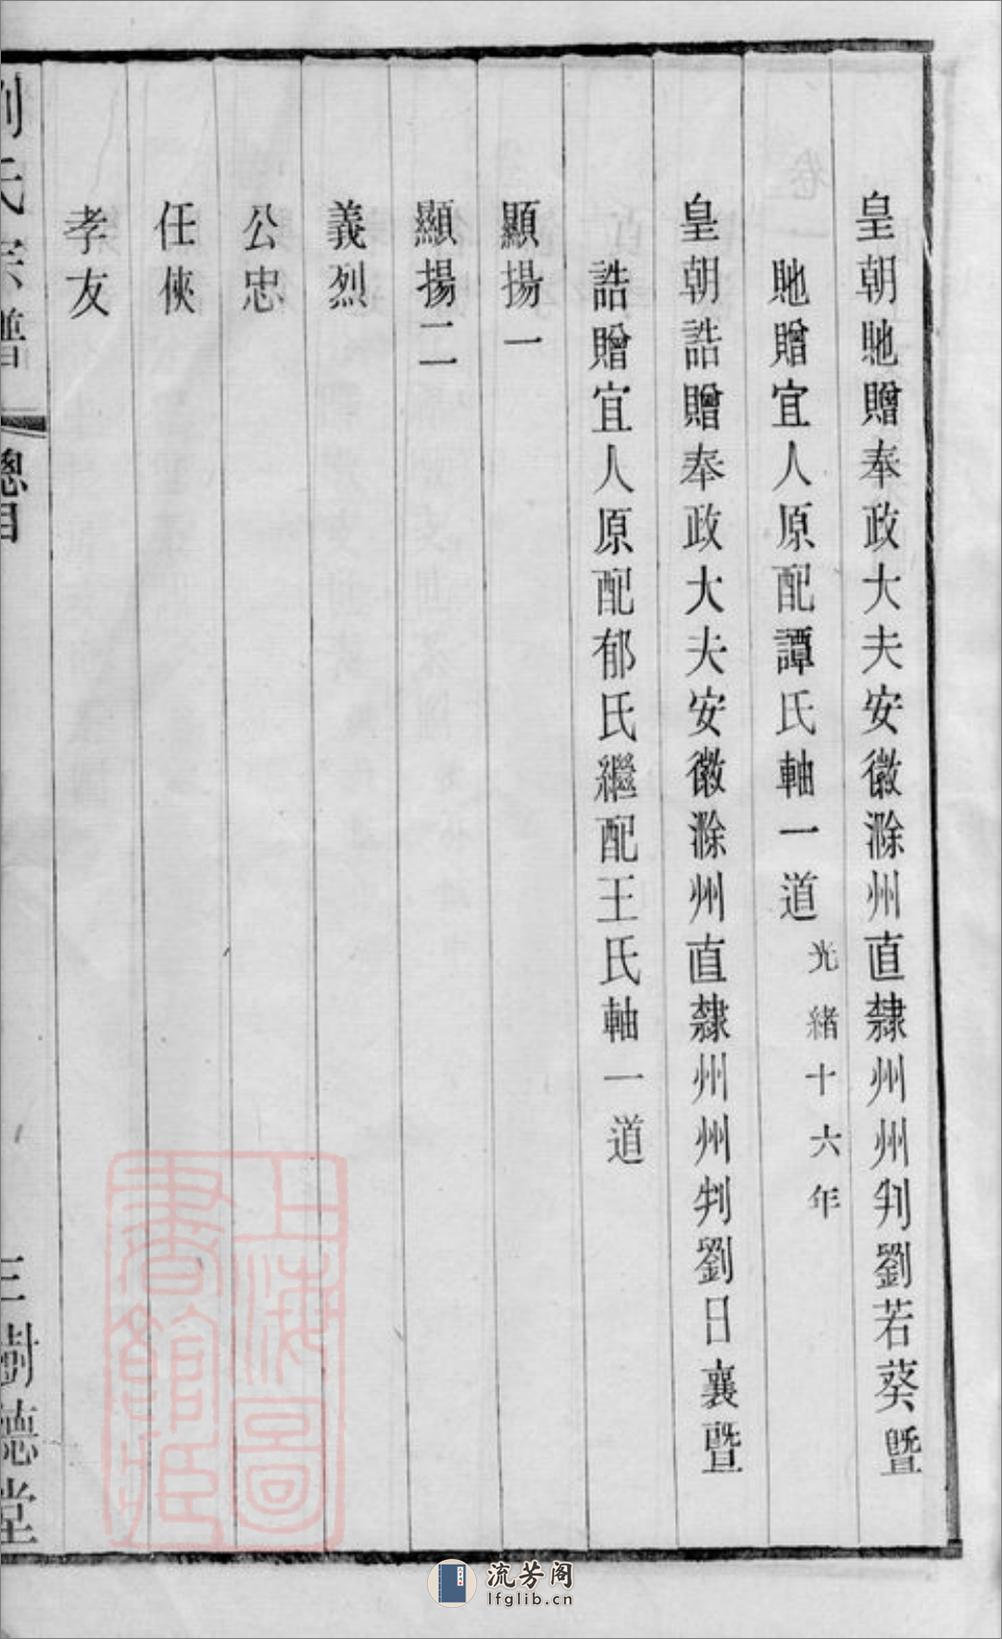 皇朝貤贈奉政大夫安徽滁州直隸州州判劉若葵暨
貤贈宜人原配譚氏軸一道光緒十六年
皇朝誥贈奉政大夫安徽滁州直隸州州判劉日襄暨
誥贈宜人原配郁氏繼配王氏軸一道
顯揚一
顯揚二
義烈
公忠
任俠
孝友
劉氏宗譜 總目 三 樹德堂
上海圖書館藏
流芳阁
lfglib.cn